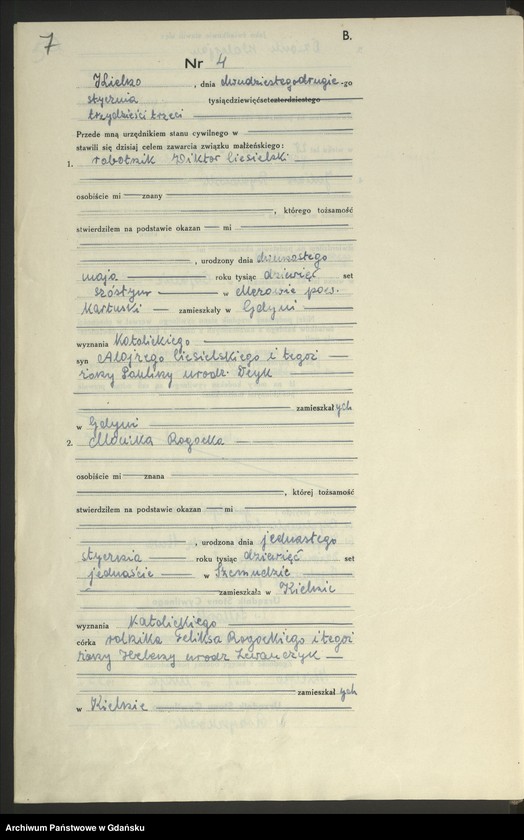 7
B.
Nr 4
Kielno, dnia dwudziestegodrugie-go
stycznia tysiącdziewięćsetczterdziestego
trzydzieści trzeci
Przede mną urzędnikiem stanu cywilnego w
stawili się dzisiaj celem zawarcia związku małżeńskiego:
1. robotnik Wiktor Ciesielski
osobiście mi znany
, którego tożsamość
stwierdziłem na podstawie okazan mi
, urodzony dnia dwunastego
maja roku tysiąc dziewięć set
szóstym w Mezowie pow.
Kartuski zamieszkały w Gdyni
wyznania Katolickiego
syn Alojzego Ciesielskiego i tegoż
żony Pauliny urodz. Deyk
zamieszkał ych
w Gdyni
2. Monika Rogocka
osobiście mi znana
, której tożsamość
stwierdziłem na podstawie okazan mi
, urodzona dnia jednastego
stycznia roku tysiąc dziewięć set
jednaście w Szemudzie
zamieszkała w Kielnie
wyznania Katolickiego
córka rolnika Feliksa Rogockiego i tegoż
żony Heleny urodz
zamieszkał ych
w Kielnie
Archiwum Państwowe w Gdańsku